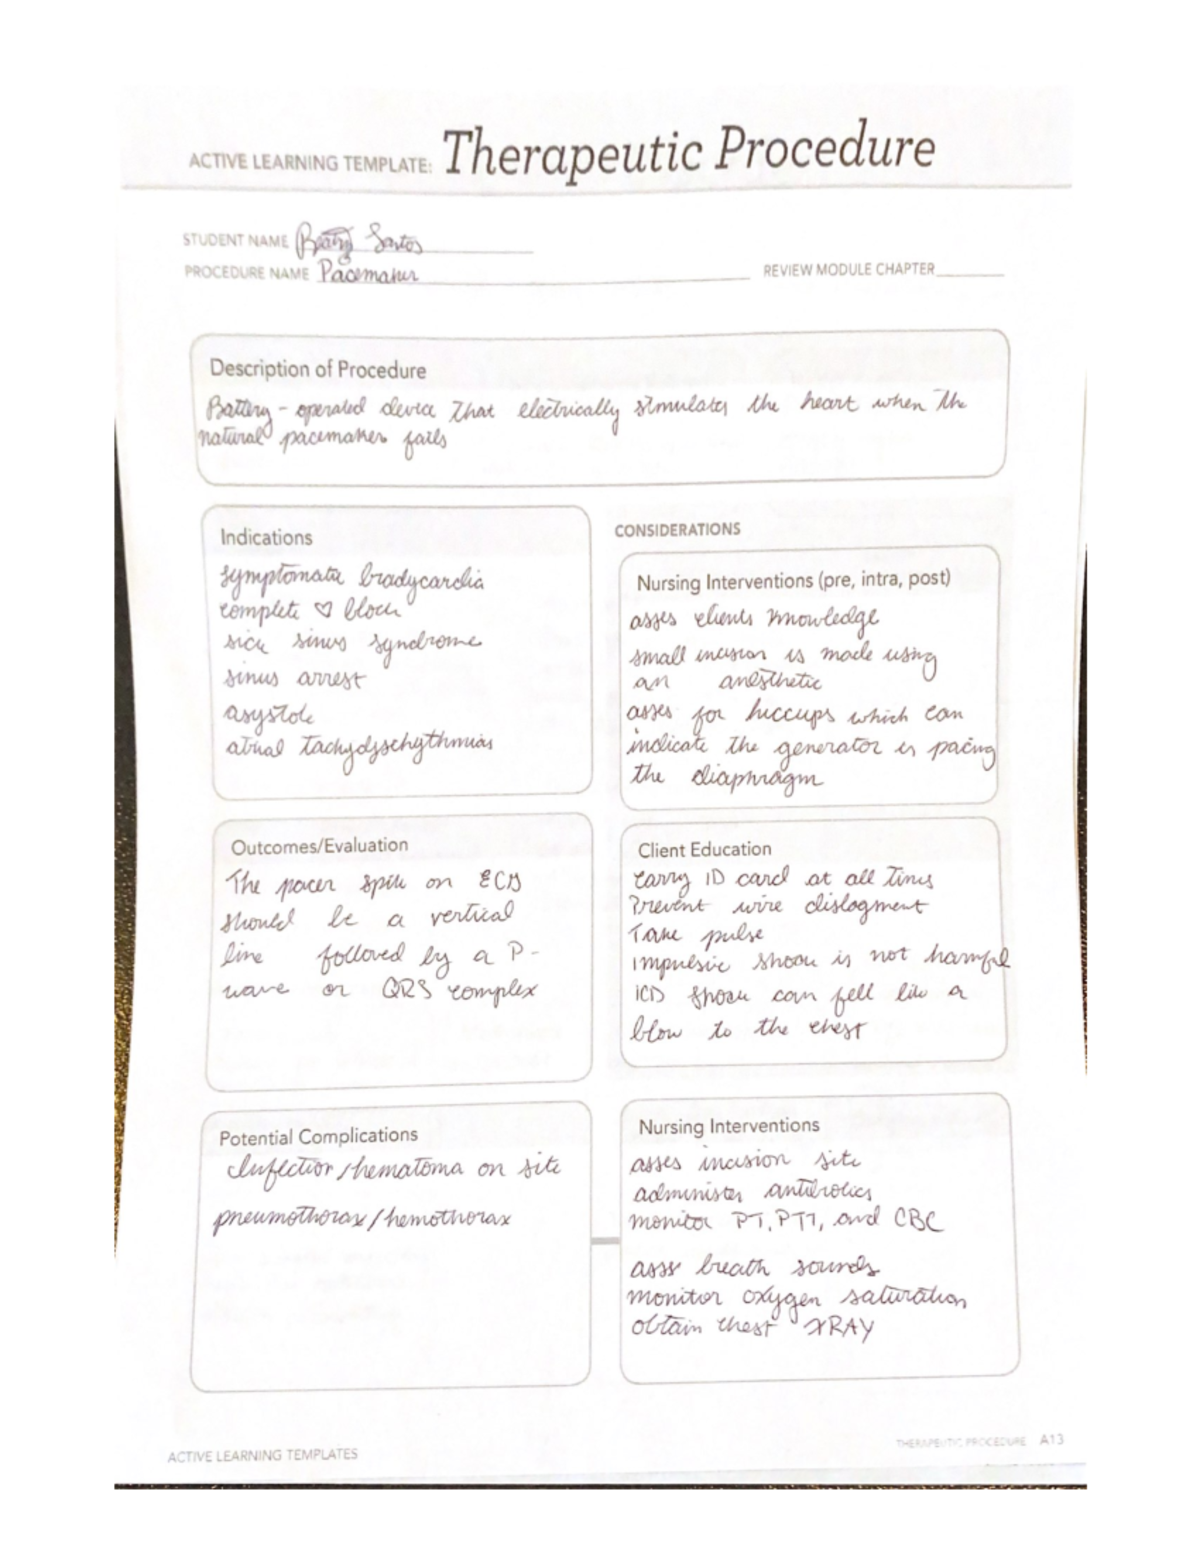 ACTIVE LEARNING TEMPLATE: Therapeutic Procedure
STUDENT NAME Santos
PROCEDURE NAME Pacemaker
REVIEW MODULE CHAPTER
Description of Procedure
Battery-operated device that electrically stimulates the heart when the
natural pacemaker fails
Indications
symptomatic bradycardia
complete ♡ block
sick sinus syndrome
sinus arrest
asystole
atrial tachydyschythmias
CONSIDERATIONS
Nursing Interventions (pre, intra, post)
asses clients knowledge
small incision is made using
an anesthetic
asses for hiccups which can
indicate the generator is pacing
the diaphragm
Outcomes/Evaluation
The pacer spike on ECG
should be a vertical
line followed by a P-
wave or QRS complex
Client Education
carry ID card at all times
Prevent wire dislogment
Take pulse
impulsic shock is not harmful
ICD shock can fell like a
blow to the chest
Potential Complications
Infection/hematoma on site
pneumothorax/hemothorax
Nursing Interventions
asses incision site
administer antibiotics
monitor PT, PTT, and CBC
asss breath sounds
monitor oxygen saturation
obtain chest XRAY
ACTIVE LEARNING TEMPLATES
THERAPEUTIC PROCEDURE A13